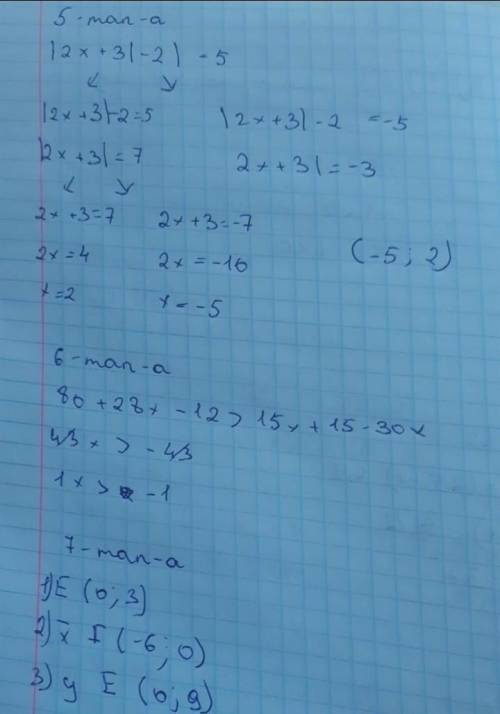 5-тап-а
|2x+3|-2| -5
|2x+3|-2=5 |2x+3|-2 =-5
|2x+3|=7 2x+3|=-3
2x+3=7 2x+3=-7
2x=4 2x=-10
x=2 x=-5 (-5; 2)
6-тап-а
80+28x-12>15x+15-30x
43x>-43
1x>-1
7-тап-а
1) E (0; 3)
2) x E (-6; 0)
3) y E (0; 9)